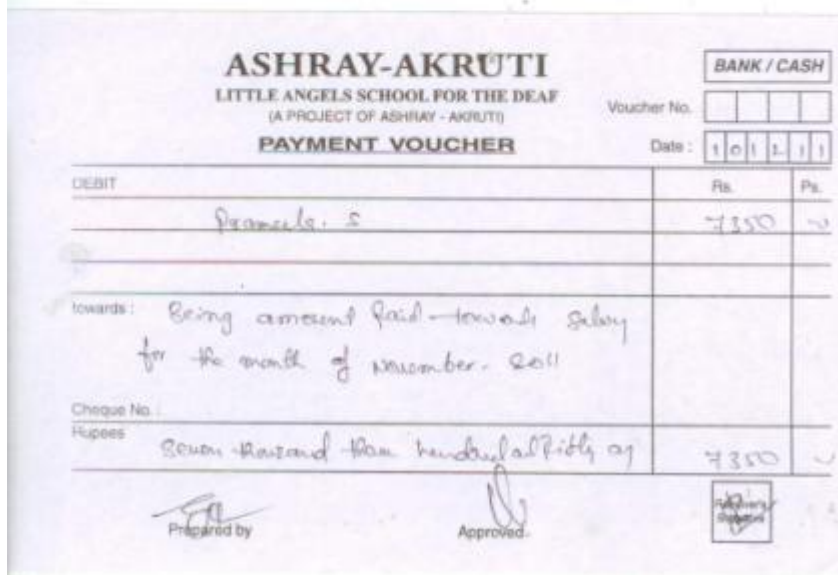 ASHRAY-AKRUTI
BANK / CASH
LITTLE ANGELS SCHOOL FOR THE DEAF
(A PROJECT OF ASHRAY - AKRUTI)
Voucher No.
PAYMENT VOUCHER
Date : 1 0 1 2 1 1
DEBIT Rs. Ps.
Prameela. S 7350
towards : Being amount Paid towards Salary
for the month of November. 2011
Cheque No. :
Rupees Seven thousand three hundred Fifty 7350
Prepared by Approved